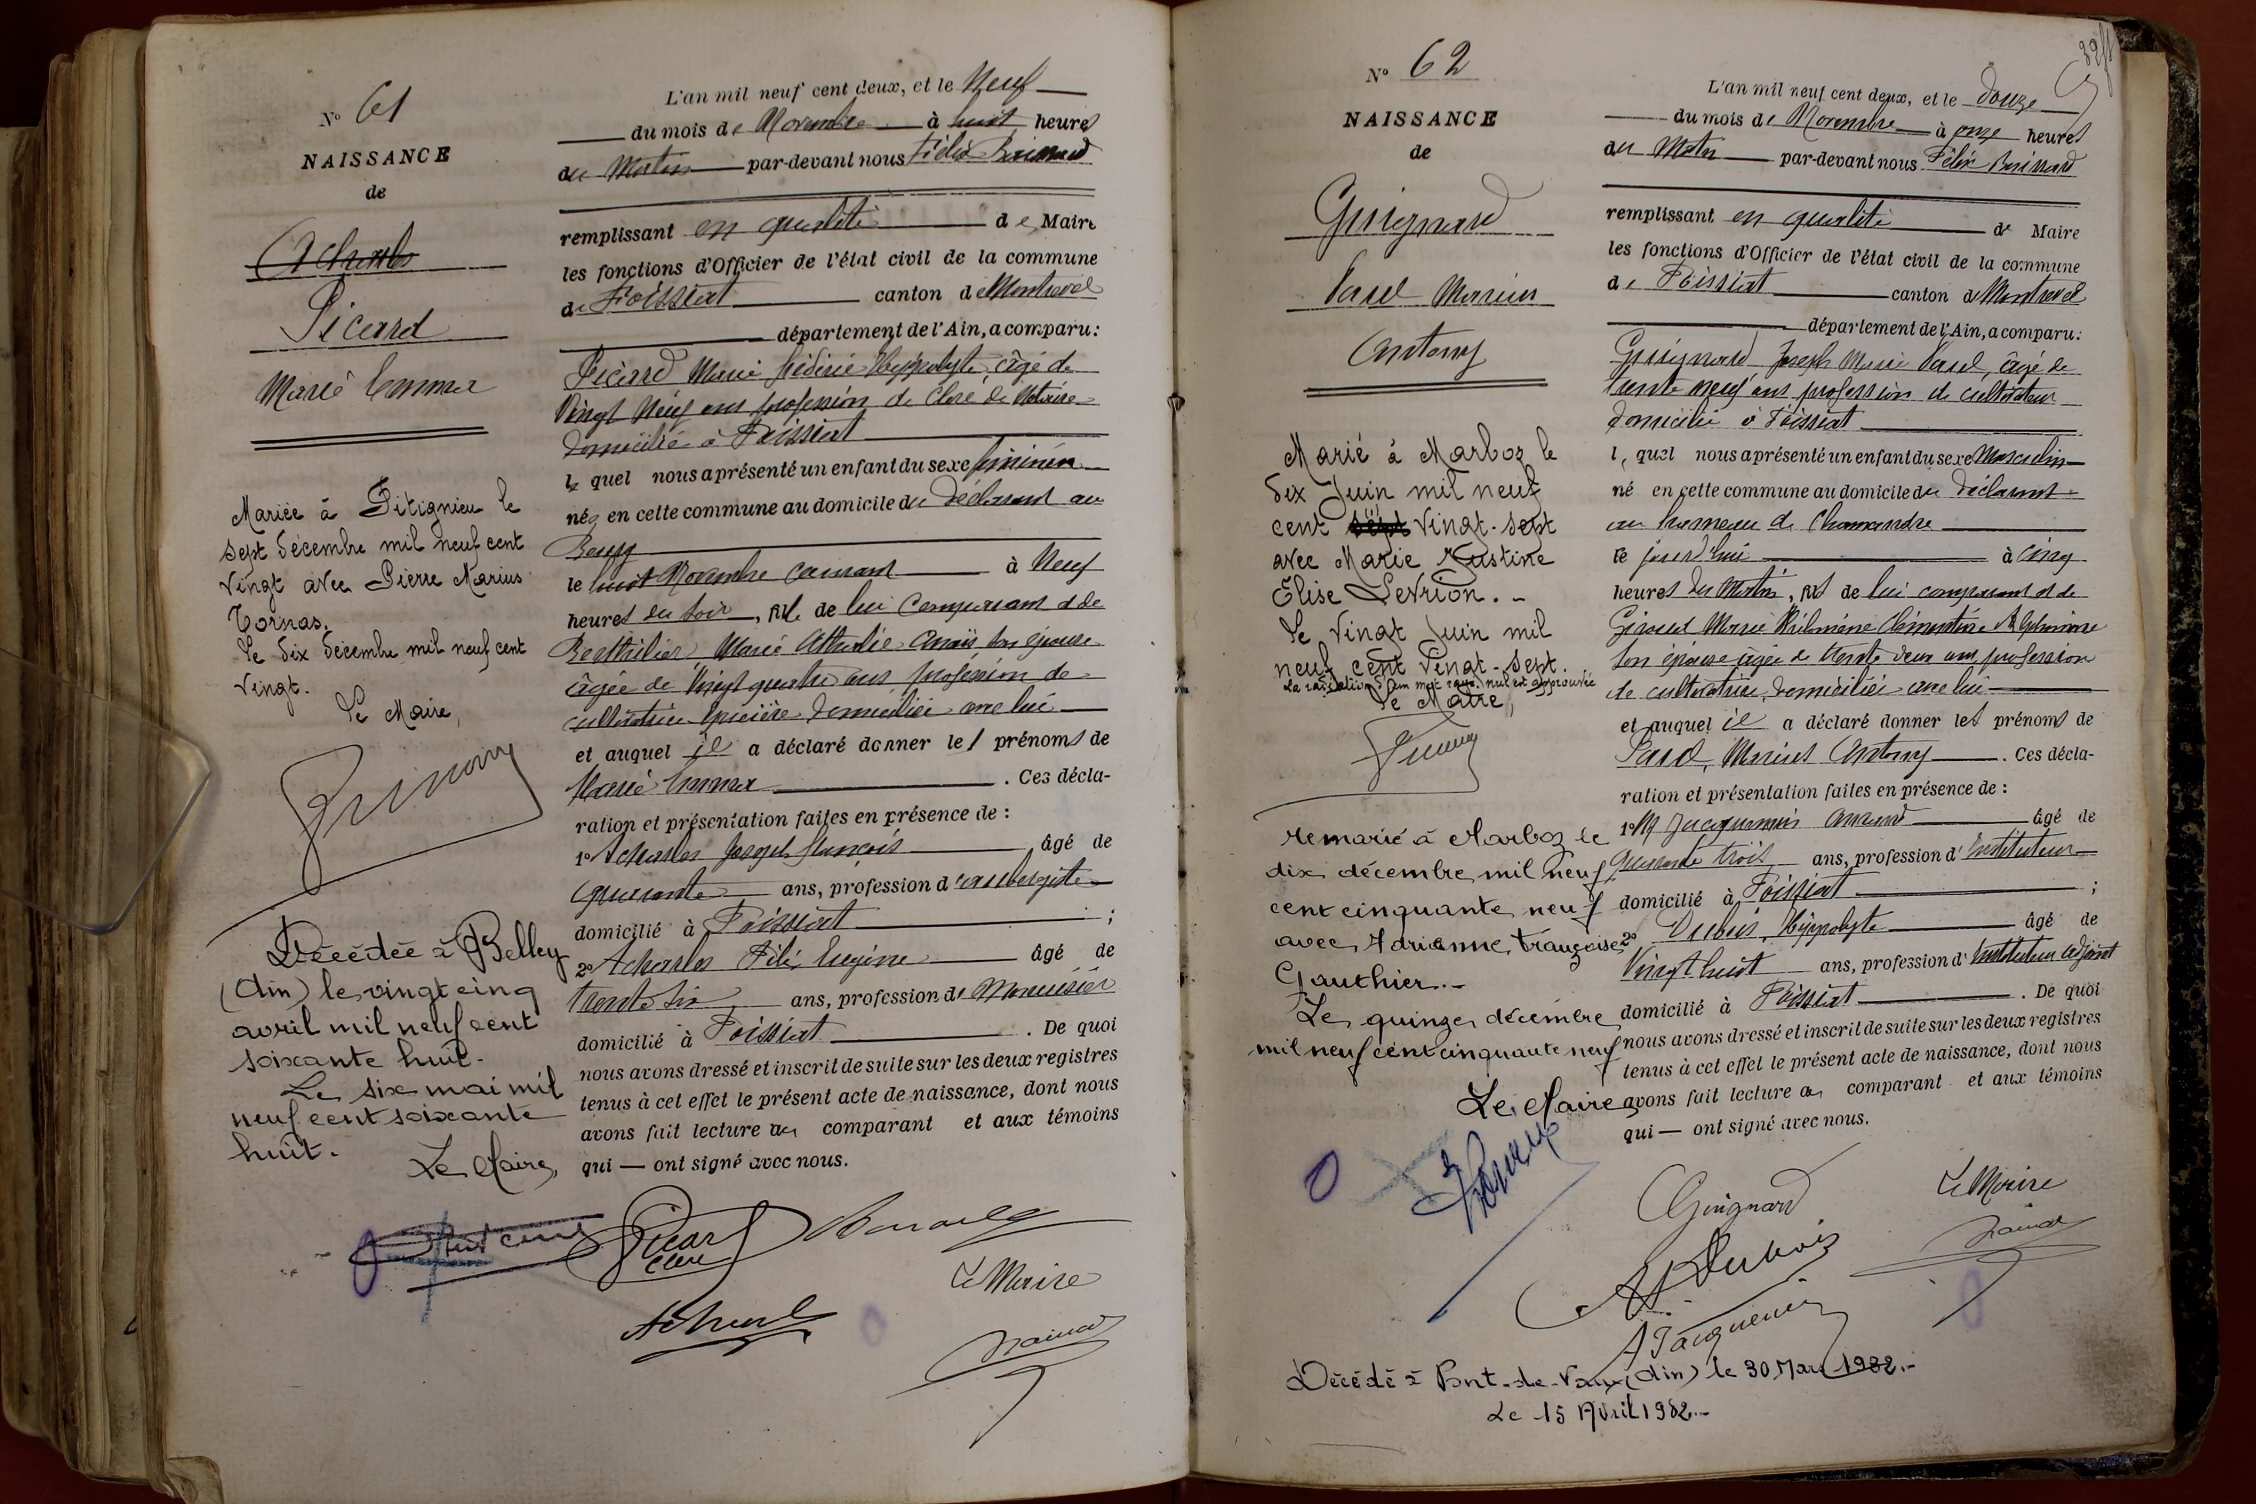 N° 61
NAISSANCE
de
Picard
Marie Emma
Mariée à Pitignieu le
sept décembre mil neuf cent
vingt avec Pierre Marius
Tornas.
Le dix décembre mil neuf cent
vingt.
Le Maire,
Décédée à Belley
(Ain) le vingt cinq
avril mil neuf cent
soixante huit.
Le six mai mil
neuf cent soixante
huit.
Le Maire,
L'an mil neuf cent deux, et le Neuf
du mois de Novembre à huit heures
du Matin par-devant nous Félix
remplissant en qualité de Maire
les fonctions d'Officier de l'état civil de la commune
de Foissiat canton de Montrevel
département de l'Ain, a comparu :
Picard Marie Frédéric Hyppolyte, âgé de
Vingt Neuf ans profession de Clerc de Notaire
domicilié à Foissiat
le quel nous a présenté un enfant du sexe féminin
née en cette commune au domicile du déclarant au
Bourg
le huit Novembre courant à Neuf
heures du soir, née de lui comparant et de
Berthilier Marie Athalie Anaïs son épouse
âgée de Vingt quatre ans profession de
cultivatrice épicière domiciliée avec lui
et auquel il a déclaré donner les prénoms de
Marie Emma. Ces décla-
ration et présentation faites en présence de :
1° Acharles Joseph François âgé de
quarante ans, profession d'aubergiste
domicilié à Foissiat ;
2° Acharles Félix Eugène âgé de
trente six ans, profession de Menuisier
domicilié à Foissiat. De quoi
nous avons dressé et inscrit de suite sur les deux registres
tenus à cet effet le présent acte de naissance, dont nous
avons fait lecture au comparant et aux témoins
qui — ont signé avec nous.
Picard
Le Maire
N° 62
NAISSANCE
de
Guignard
Paul Marius
Antony
Marié à Marboz le
dix Juin mil neuf
cent sept vingt-sept
avec Marie Justine
Elise Levrion.-
Le vingt Juin mil
neuf cent vingt-sept.
La radiation d'un mot rayé nul est approuvée
Le Maire,
Remarié à Marboz le
dix décembre mil neuf
cent cinquante neuf
avec Adrienne Françoise
Gauthier.-
Le quinze décembre
mil neuf cent cinquante neuf
Le Maire,
L'an mil neuf cent deux, et le douze
du mois de Novembre à onze heures
du Matin par-devant nous Félix
remplissant en qualité de Maire
les fonctions d'Officier de l'état civil de la commune
de Foissiat canton de Montrevel
département de l'Ain, a comparu :
Guignard Joseph Marie Paul, âgé de
trente neuf ans profession de cultivateur
domicilié à Foissiat
le quel nous a présenté un enfant du sexe Masculin
né en cette commune au domicile du déclarant
au hameau de Chamandre
ce jourd'hui à cinq
heures du Matin, né de lui comparant et de
Giroud Marie Philomène Clémentine Alphonsine
son épouse âgée de trente deux ans profession
de cultivatrice, domiciliée avec lui
et auquel il a déclaré donner les prénoms de
Paul, Marius Antony. Ces décla-
ration et présentation faites en présence de :
1° M Jacquemin Amand âgé de
quarante trois ans, profession d'Instituteur
domicilié à Foissiat ;
2° Dubois, Hyppolyte âgé de
Vingt huit ans, profession d'Instituteur adjoint
domicilié à Foissiat. De quoi
nous avons dressé et inscrit de suite sur les deux registres
tenus à cet effet le présent acte de naissance, dont nous
avons fait lecture au comparant et aux témoins
qui — ont signé avec nous.
Guignard
Le Maire
H. Dubois
A Jacquemin
Décédé à Pont-de-Vaux (Ain) le 30 Mars 1982.-
Le 15 Avril 1982.-